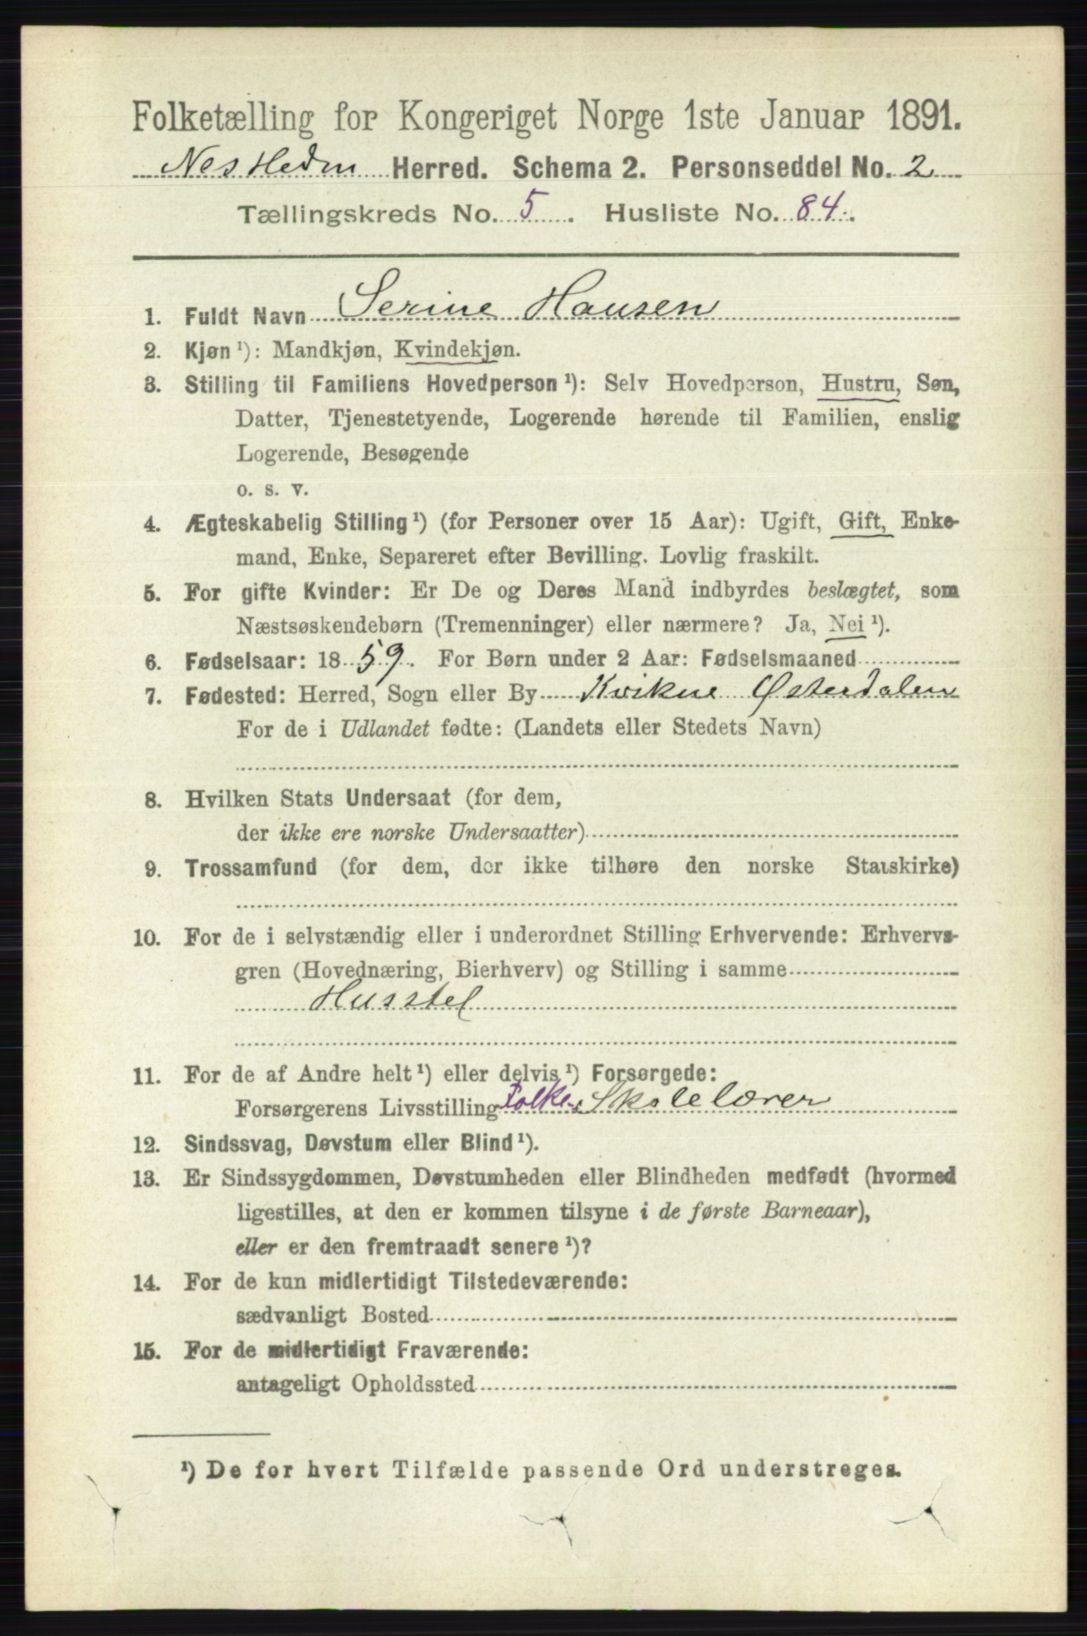 Folketælling for Kongeriget Norge 1ste Januar 1891.
Nes Hedm Herred. Schema 2. Personseddel No. 2
Tællingskreds No. 5. Husliste No. 84.
1. Fuldt Navn Serine Hansen
2. Kjøn ¹): Mandkjøn, Kvindekjøn.
3. Stilling til Familiens Hovedperson ¹): Selv Hovedperson, Hustru, Søn,
Datter, Tjenestetyende, Logerende hørende til Familien, enslig
Logerende, Besøgende
o. s. v.
4. Ægteskabelig Stilling ¹) (for Personer over 15 Aar): Ugift, Gift, Enke-
mand, Enke, Separeret efter Bevilling. Lovlig fraskilt.
5. For gifte Kvinder: Er De og Deres Mand indbyrdes beslægtet, som
Næstsøskendebørn (Tremenninger) eller nærmere? Ja, Nei ¹).
6. Fødselsaar: 1859. For Børn under 2 Aar: Fødselsmaaned
7. Fødested: Herred, Sogn eller By Kvikne Østerdalen
For de i Udlandet fødte: (Landets eller Stedets Navn)
8. Hvilken Stats Undersaat (for dem,
der ikke ere norske Undersaatter)
9. Trossamfund (for dem, der ikke tilhøre den norske Statskirke)
10. For de i selvstændig eller i underordnet Stilling Erhvervende: Erhvervs-
gren (Hovednæring, Bierhverv) og Stilling i samme
Husstel
11. For de af Andre helt ¹) eller delvis ¹) Forsørgede:
Forsørgerens Livsstilling Folke Skolelærer
12. Sindssvag, Døvstum eller Blind ¹).
13. Er Sindssygdommen, Døvstumheden eller Blindheden medfødt (hvormed
ligestilles, at den er kommen tilsyne i de første Barneaar),
eller er den fremtraadt senere ¹)?
14. For de kun midlertidigt Tilstedeværende:
sædvanligt Bosted
15. For de midlertidigt Fraværende:
antageligt Opholdssted
¹) De for hvert Tilfælde passende Ord understreges.